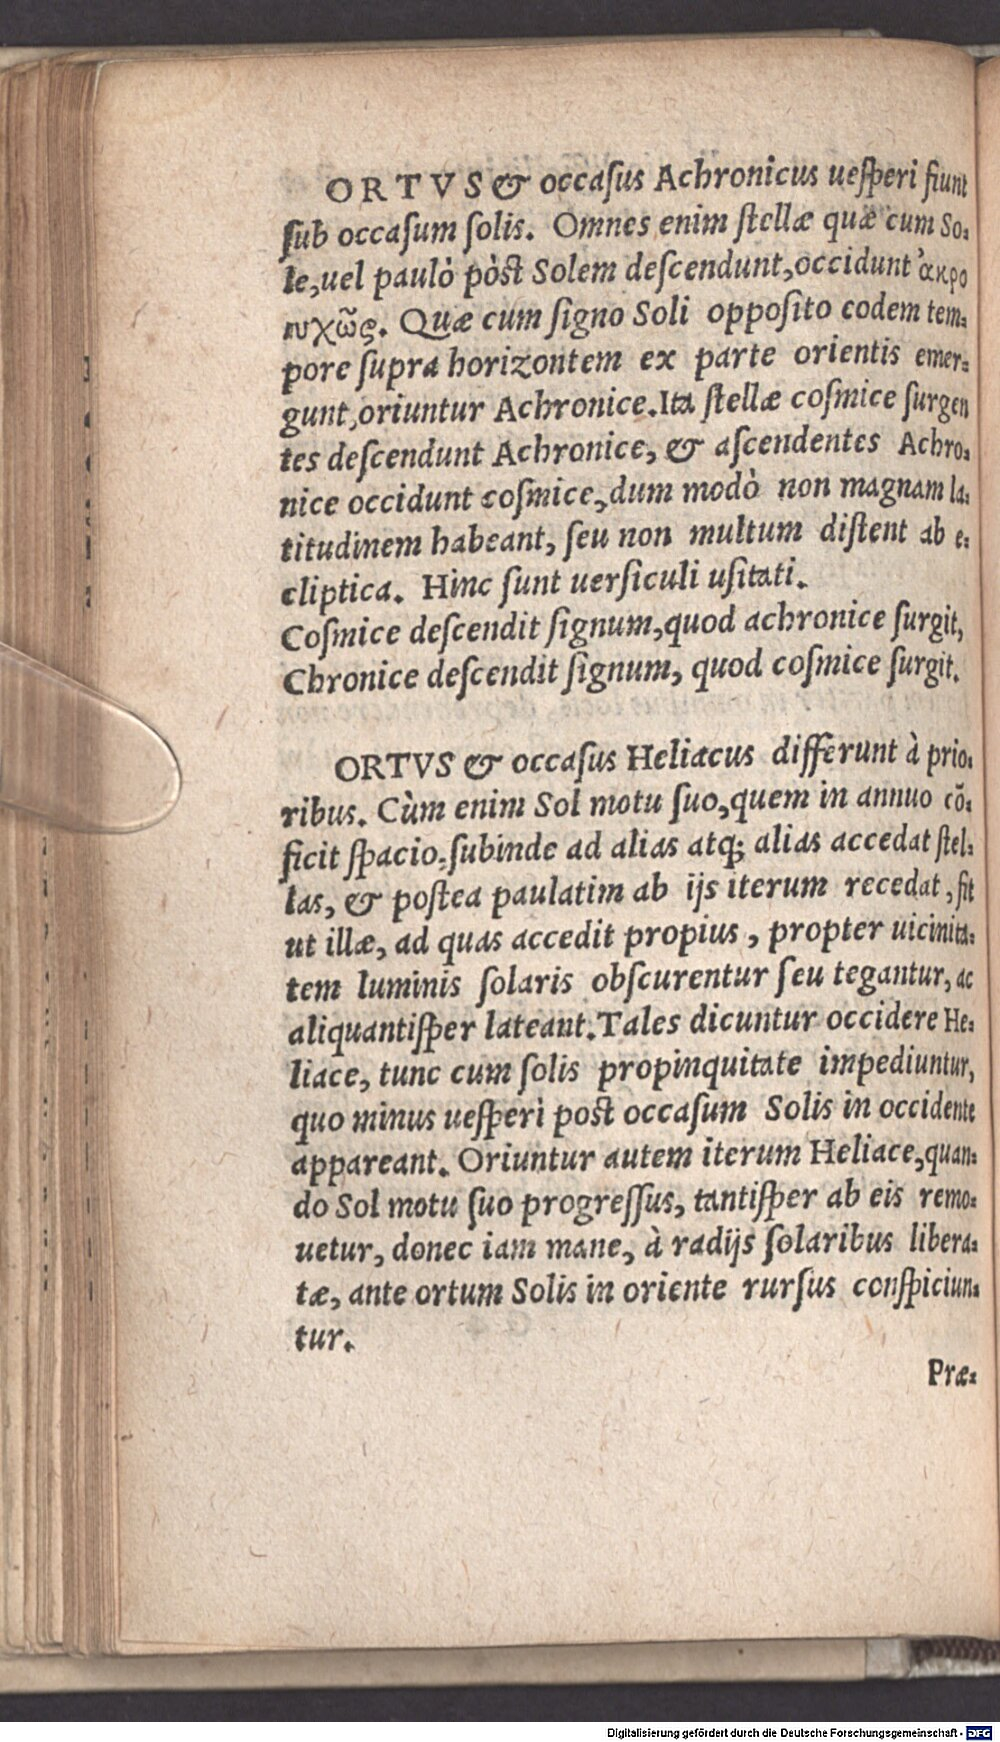 ORTVS & occaſus Achronicus ueſperi fiunt
ſub occaſum ſolis. Omnes enim ſtellæ quæ cum So-
le, uel paulò pòſt Solem deſcendunt, occidunt ἀκρο
νυχῶς. Quæ cum ſigno Soli oppoſito eodem tem-
pore ſupra horizontem ex parte orientis emer-
gunt, oriuntur Achronice. Ita ſtellæ coſmice ſurgen
tes deſcendunt Achronice, & aſcendentes Achro-
nice occidunt coſmice, dum modò non magnam la-
titudinem habeant, ſeu non multum diſtent ab e-
cliptica. Hinc ſunt uerſiculi uſitati.
Coſmice deſcendit ſignum, quod achronice ſurgit,
Chronice deſcendit ſignum, quod coſmice ſurgit.
ORTVS & occaſus Heliacus differunt à prio-
ribus. Cùm enim Sol motu ſuo, quem in annuo cō-
ficit ſpacio, ſubinde ad alias atq; alias accedat ſtel-
las, & poſtea paulatim ab ijs iterum recedat, fit
ut illæ, ad quas accedit propius, propter uicinita-
tem luminis ſolaris obſcurentur ſeu tegantur, ac
aliquantiſper lateant. Tales dicuntur occidere He-
liace, tunc cum ſolis propinquitate impediuntur,
quo minus ueſperi poſt occaſum Solis in occidente
appareant. Oriuntur autem iterum Heliace, quan-
do Sol motu ſuo progreſſus, tantiſper ab eis remo-
uetur, donec iam mane, à radijs ſolaribus libera-
tæ, ante ortum Solis in oriente rurſus conſpiciun-
tur.
Præ-
Digitalisierung gefördert durch die Deutsche Forschungsgemeinschaft - DFG